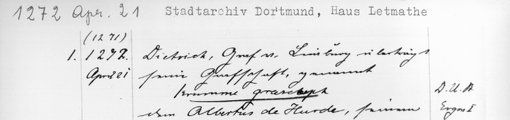 1272 Apr. 21 Stadtarchiv Dortmund, Haus Letmathe
(1271)
1. 1272. Dietrich, Graf v. Limburg überträgt
April 21 seine Grafschaft, genannt
krumme grascaph D.U.B.
dem Albertus de Hurde, seinem Ergbd I